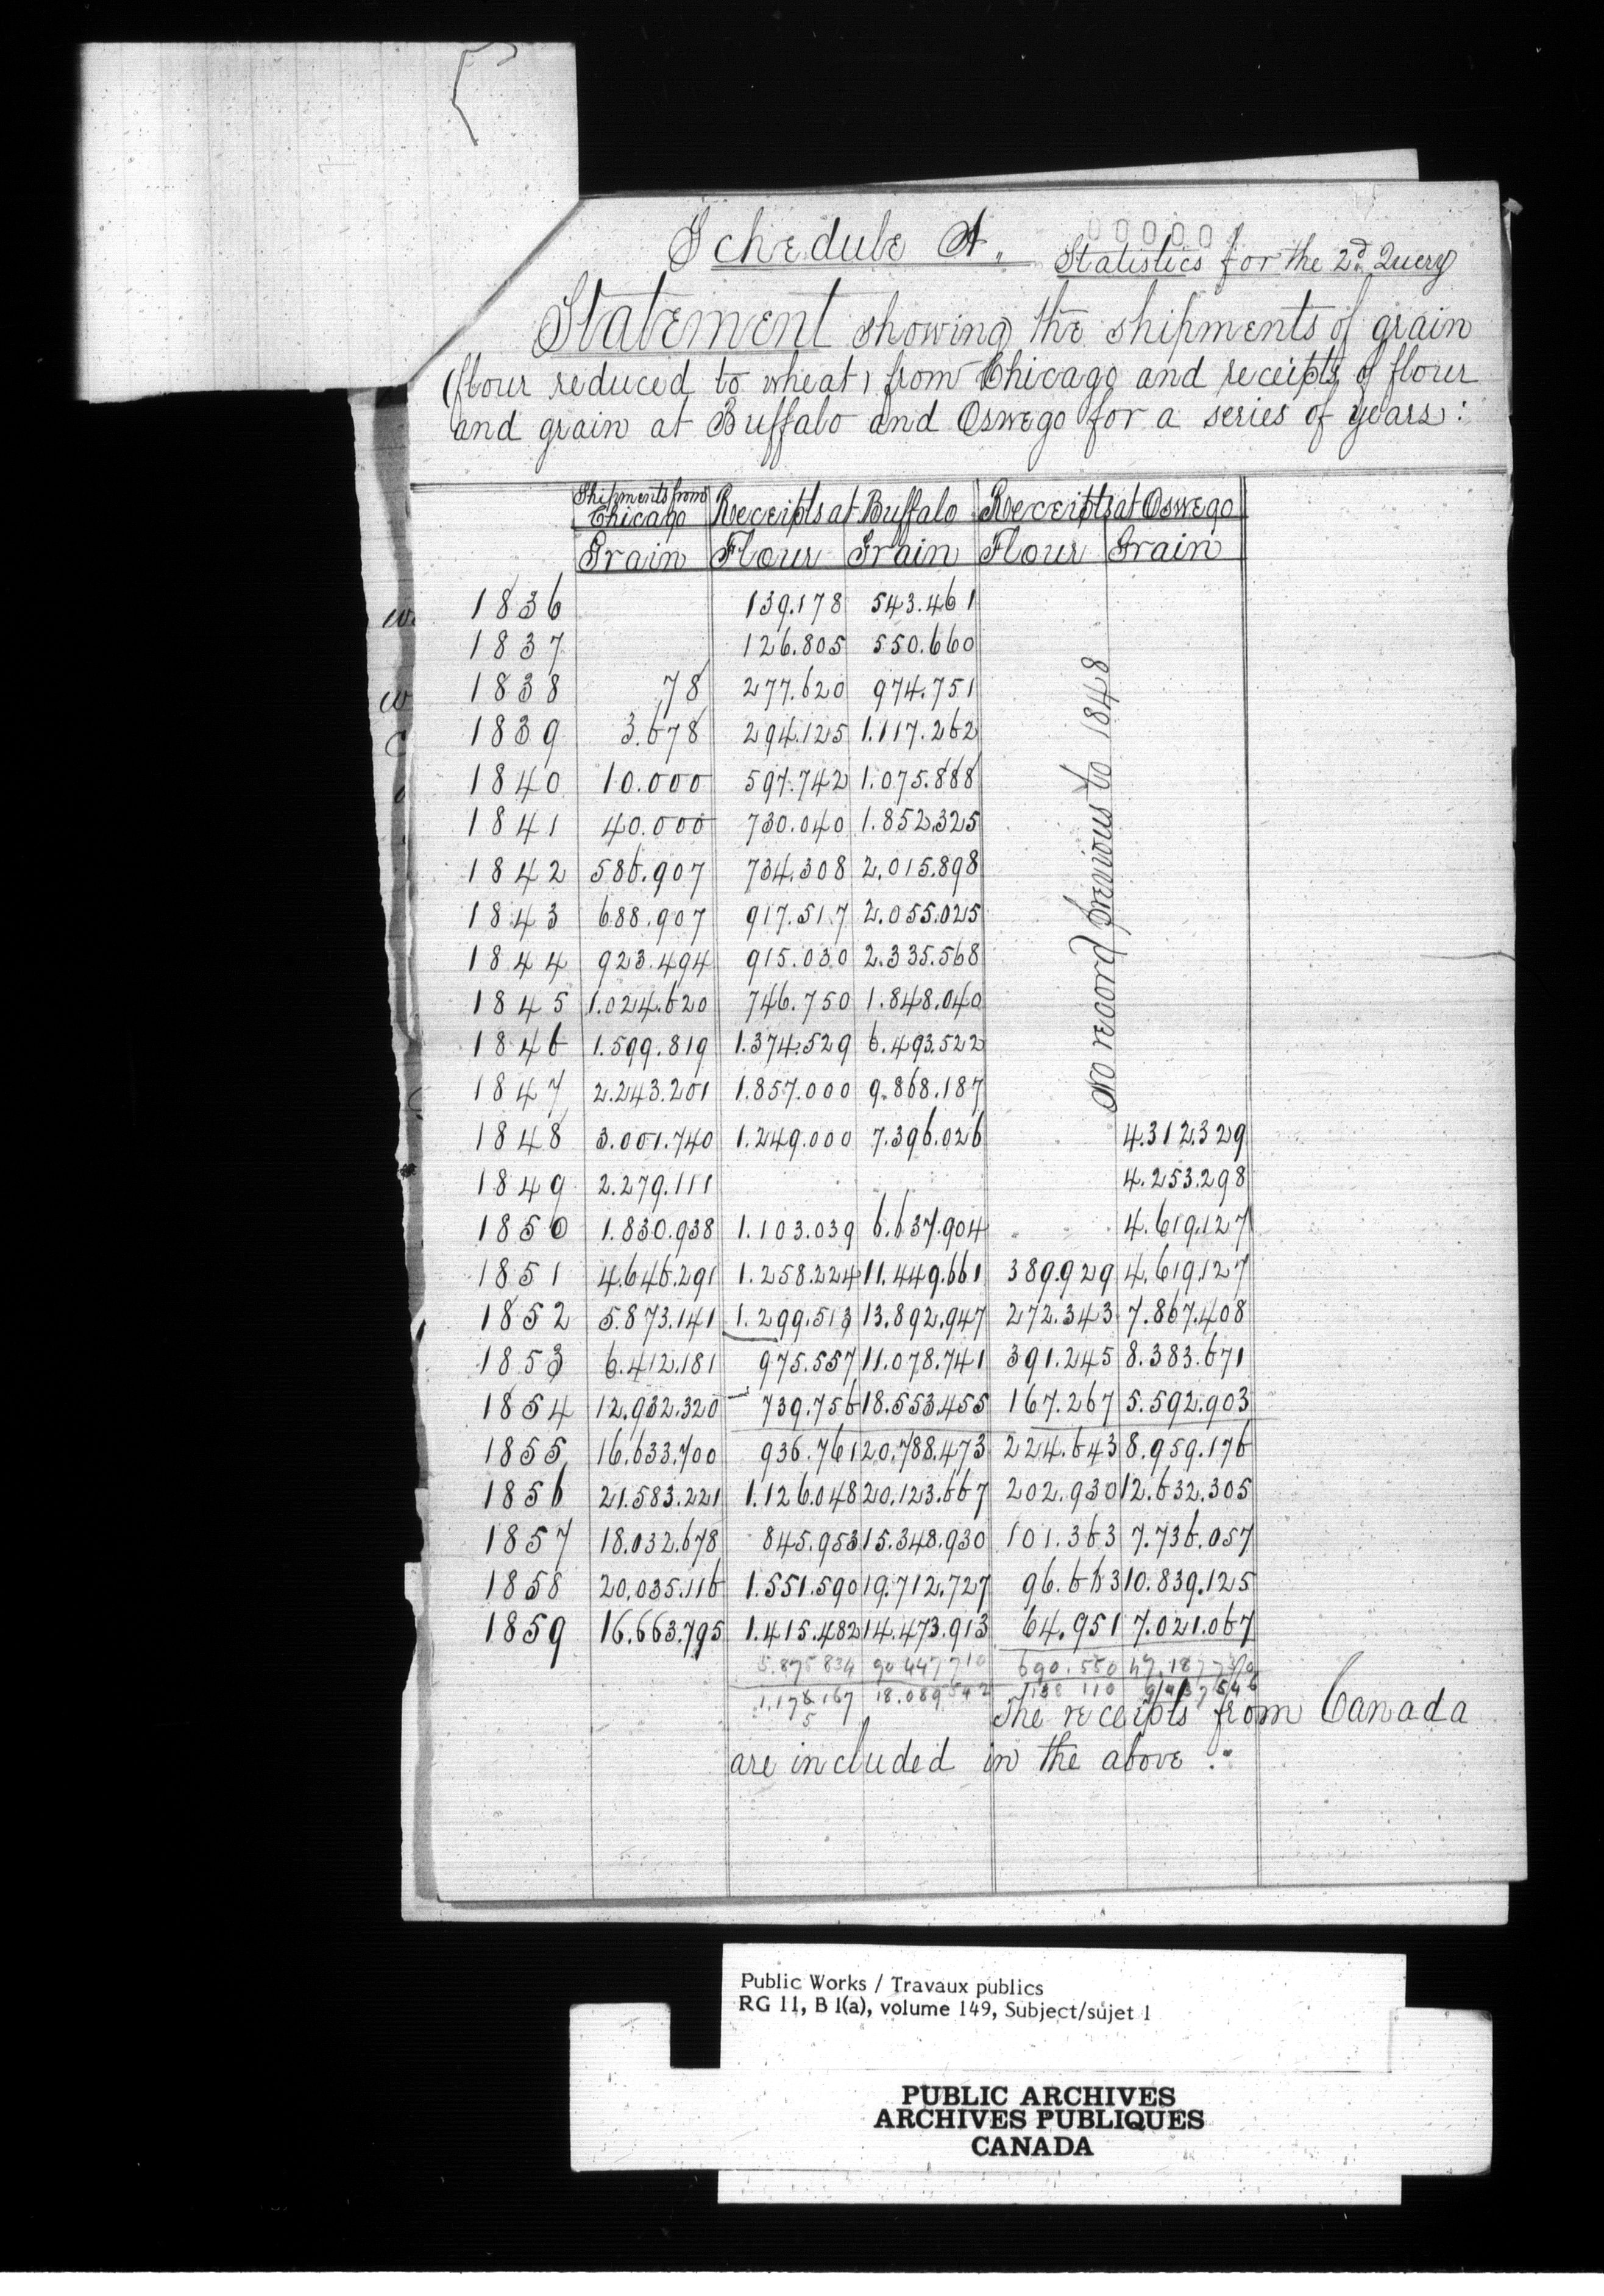 00000
Schedule A.
Statistics for the 2d. Query
Statement showing the shipments of grain
(flour reduced to wheat) from Chicago and receipts of flour
and grain at Buffalo and Oswego for a series of years:
Shipments from Chicago Receipts at Buffalo Receipts at Oswego
Grain Flour Grain Flour Grain
1836 139.178 543.461
1837 126.805 550.660
1838 78 277.620 974.751
1839 3.678 294.125 1.117.262
1840 10.000 597.742 1.075.888
1841 40.000 730.040 1.852.325
1842 586.907 734.308 2.015.898
1843 688.907 917.517 2.055.025
1844 923.494 915.030 2.335.568
1845 1.024.620 746.750 1.848.040
1846 1.599.819 1.374.529 6.493.522
1847 2.243.201 1.857.000 9.868.187
No record previous to 1848
1848 3.001.740 1.249.000 7.396.026 4.312.329
1849 2.279.111 4.253.298
1850 1.830.938 1.103.039 6.637.904 " " 4.619.127
1851 4.646.291 1.258.224 11.449.661 389.929 4.619.127
1852 5.873.141 1.299.513 13.892.947 272.343 7.867.408
1853 6.412.181 975.557 11.078.741 391.245 8.383.671
1854 12.932.320 739.756 18.553.455 167.267 5.592.903
1855 16.633.700 936.761 20.788.473 224.643 8.959.176
1856 21.583.221 1.126.048 20.123.667 202.930 12.632.305
1857 18.032.678 845.953 15.348.930 101.363 7.736.057
1858 20.035.116 1.551.590 19.712.727 96.663 10.839.125
1859 16.663.795 1.415.482 14.473.913 64.951 7.021.067
5.875 834 90 447 710 690.550
1.175.167 18.089 542 138 110
5
The receipts from Canada
are included in the above.
Public Works / Travaux publics
RG 11, B 1(a), volume 149, Subject/sujet 1
PUBLIC ARCHIVES
ARCHIVES PUBLIQUES
CANADA